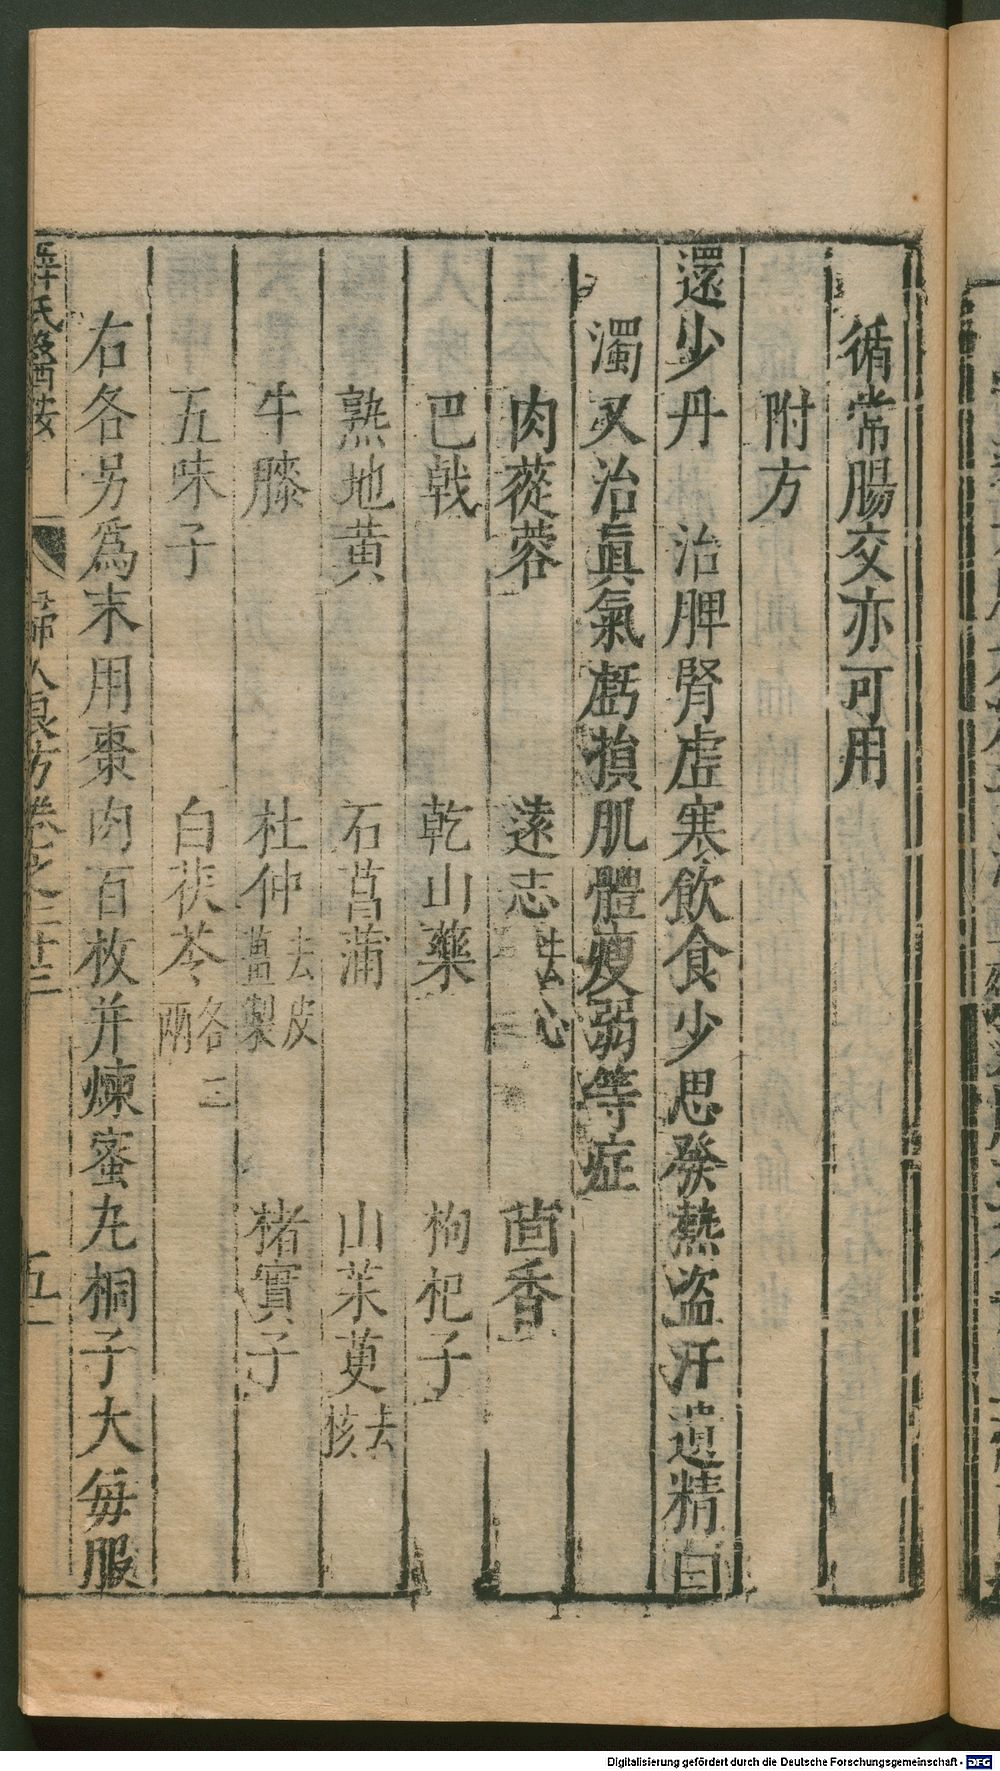 循常腸交亦可用
附方
還少丹　治脾腎虛寒飲食少思發熱盗汗遺精白
濁又治眞氣虧損肌體瘦弱等症
肉蓯蓉　遠志去心　茴香
巴戟　乾山藥　枸杞子
熟地黄　石菖蒲　山茱萸去核
牛膝　杜仲去皮薑製　楮實子
五味子　白茯苓各二兩
右各另爲末用棗肉百枚并煉蜜丸桐子大每服
薛氏醫按　婦人良方卷之二十三　五
Digitalisierung gefördert durch die Deutsche Forschungsgemeinschaft - DFG